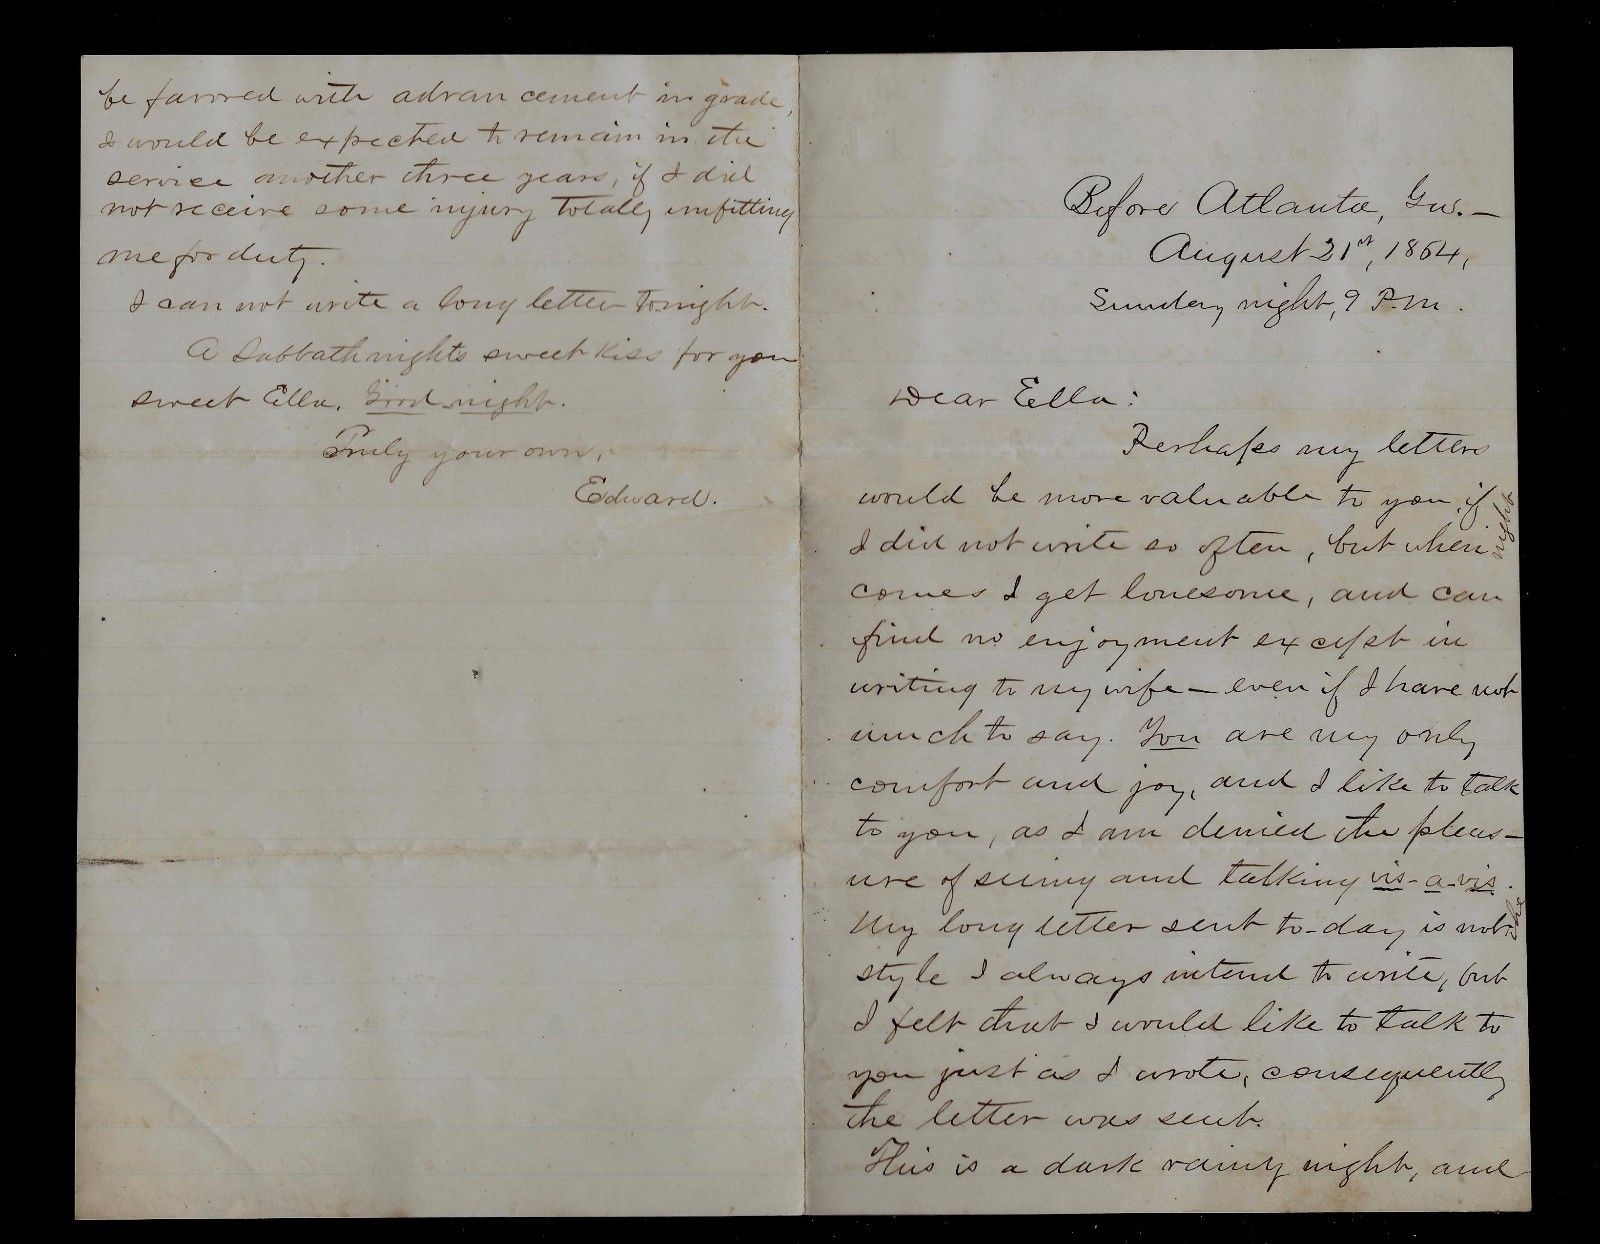 Before Atlanta, Ga.—
August 21st, 1864,
Sunday night, 9 P.M.
Dear Ella:
Perhaps my letters
would be more valuable to you, if
I did not write so often, but when night
comes I get lonesome, and can
find no enjoyment except in
writing to my wife — even if I have not
much to say. You are my only
comfort and joy, and I like to talk
to you, as I am denied the pleas-
ure of seeing and talking vis-a-vis.
My long letter sent to-day is not the
style I always intend to write, but
I felt that I would like to talk to
you just as I wrote, consequently
the letter was sent.
This is a dark rainy night, and
be favored with advancement in grade,
I would be expected to remain in the
service another three years, if I did
not receive some injury totally unfitting
me for duty.
I can not write a long letter to-night.
A Sabbath nights sweet kiss for you
sweet Ella. Good night.
Truly your own,
Edward.